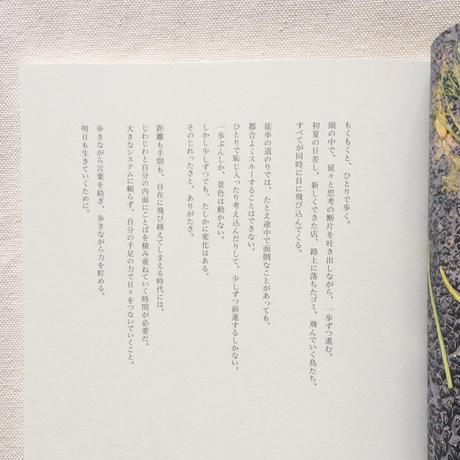 もくもくと、ひとりで歩く。
頭の中で、延々と思考の断片を吐き出しながら、一歩ずつ進む。
初夏の日差し、新しくできた店、路上に落ちたゴミ、飛んでいく鳥たち、
すべてが同時に目に飛び込んでくる。
徒歩の道のりでは、たとえ途中で面倒なことがあっても、
都合よくスルーすることはできない。
ひとりで恥じ入ったり考え込んだりして、少しずつ前進するしかない。
一歩ぶんしか、景色は動かない。
しかし少しずつでも、たしかに変化はある。
そのじれったさと、ありがたさ。
距離も手間も、自在に飛び越えてしまえる時代には、
じわじわと自分の内面にことばを積み重ねていく時間が必要だ。
大きなシステムに頼らず、自分の手足の力で日々をつないでいくこと。
歩きながら言葉を紡ぎ、歩きながら力を貯める。
明日も生きていくために。